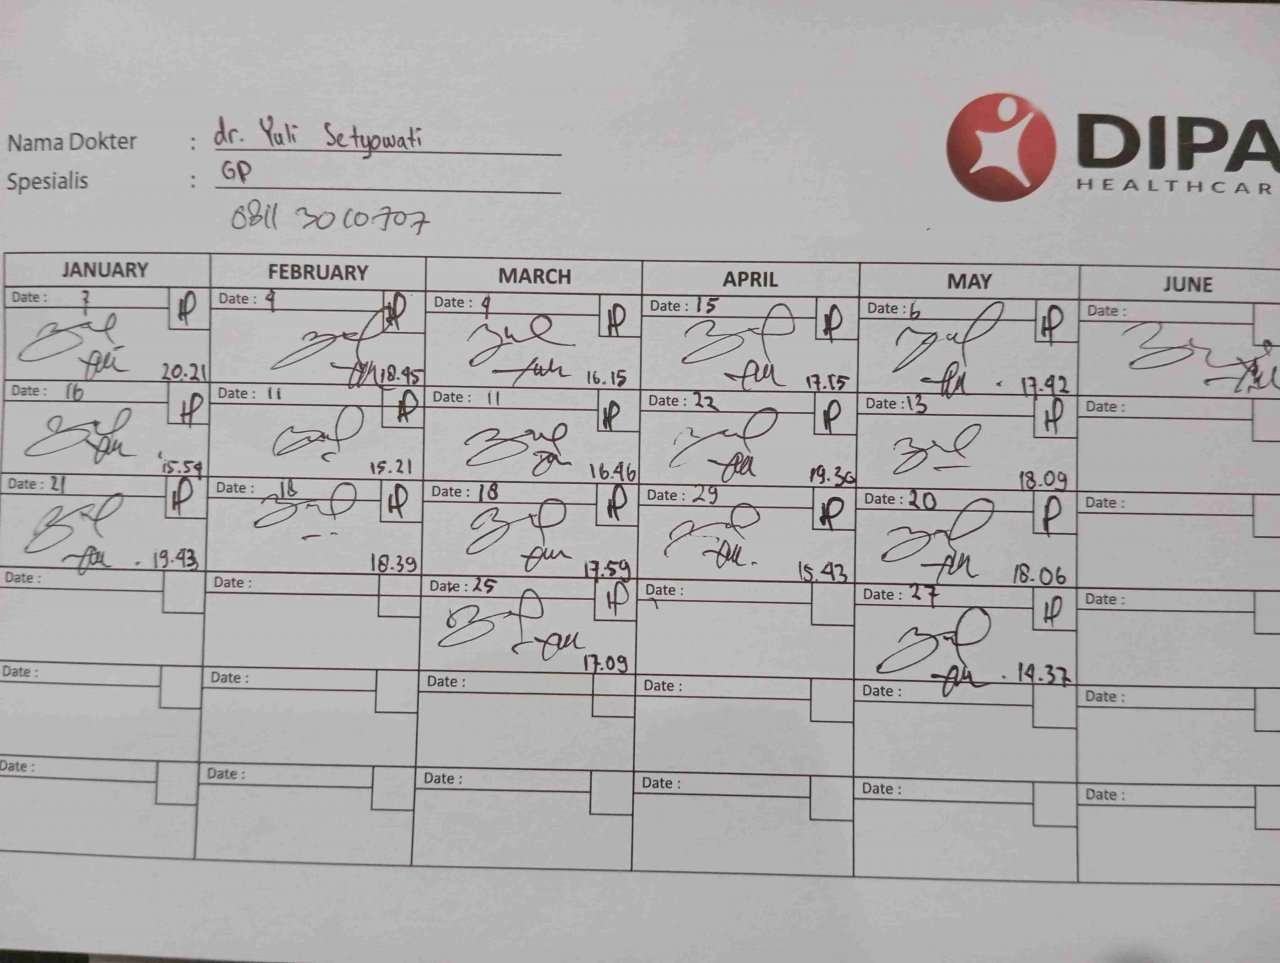 Nama Dokter : dr. Yuli Setyowati
Spesialis : GP
0811 3010707
DIPA
HEALTHCAR
JANUARY FEBRUARY MARCH APRIL MAY JUNE
Date : 7 Date : 4 Date : 4 Date : 15 Date : 6 Date :
20.21 18.45 16.15 17.55 17.42
Date : 16 Date : 11 Date : 11 Date : 22 Date : 13 Date :
15.54 15.21 16.46 19.30 18.09
Date : 21 Date : 18 Date : 18 Date : 29 Date : 20 Date :
19.43 18.39 17.59 15.43 18.06
Date : Date : Date : 25 Date : Date : 27 Date :
17.09 14.37
Date : Date : Date : Date : Date : Date :
Date : Date : Date : Date : Date : Date :